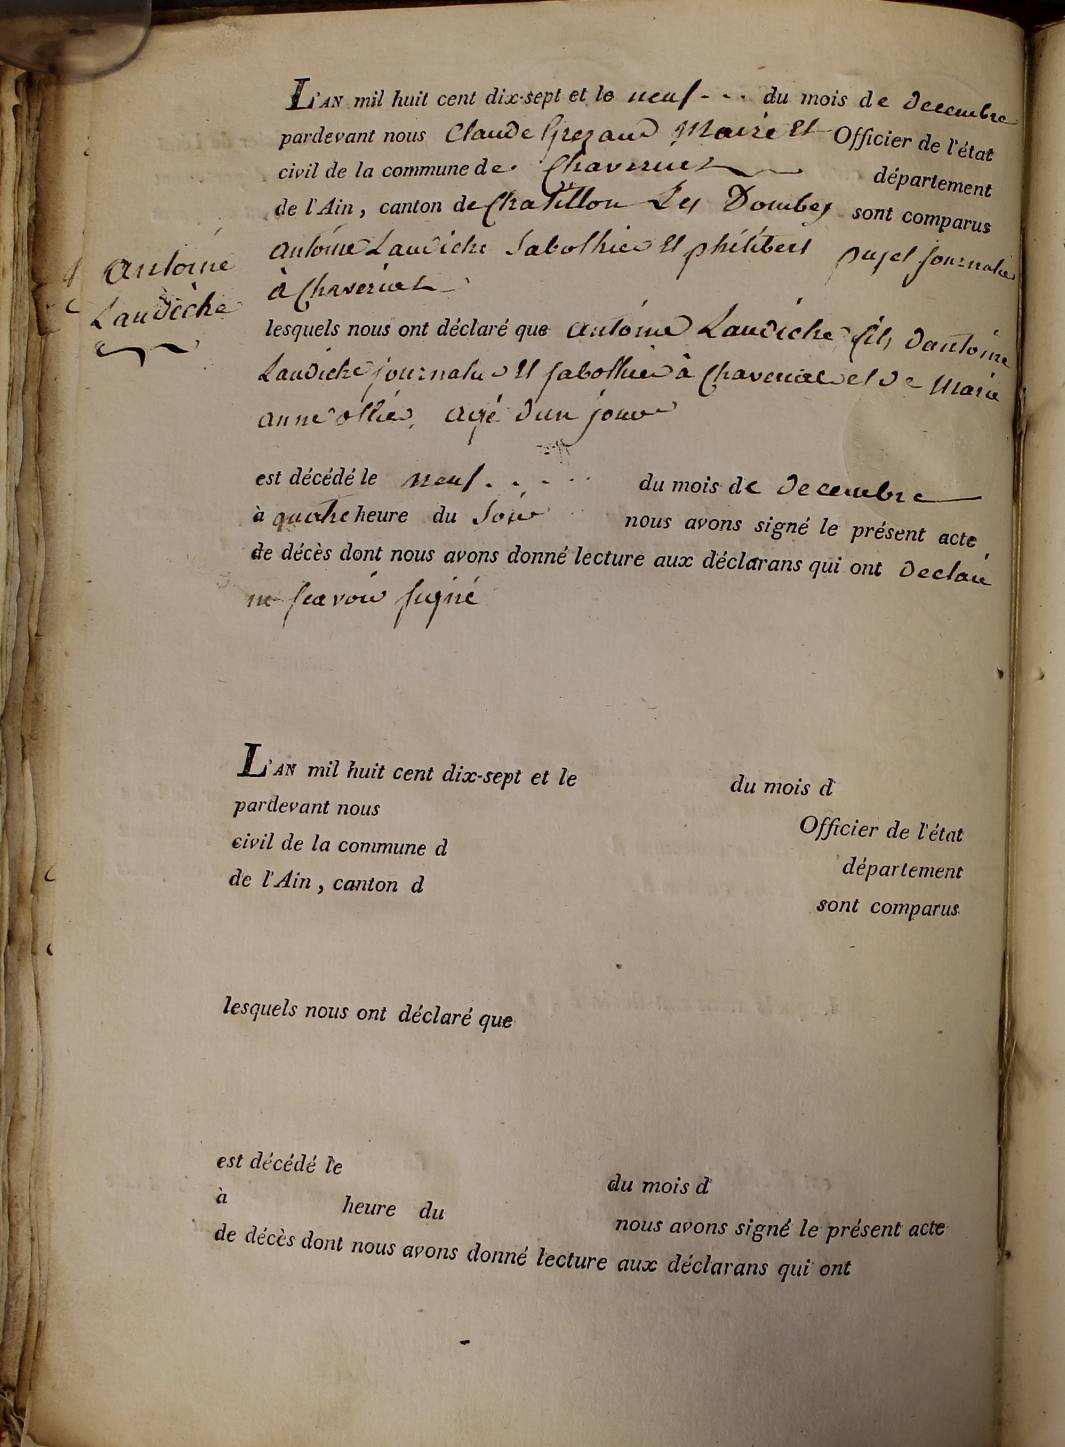 L'AN mil huit cent dix-sept et le neuf - - - du mois de decembre
pardevant nous Claude Grezaud Maire Et Officier de l'état
civil de la commune de Chaveriat département
de l'Ain, canton de Chatillon Les Dombes sont comparus
antoine Laudiche Sabothier Et philibert pujet journalier
à Chaveriat
Antoine
Laudèche
lesquels nous ont déclaré que antoine Laudiche fils dantoine
Laudiche journalier Et Sabothier à Chaveriat et de Marie
anne ollier, agé d'un jour
est décédé le neuf - - - - du mois de decembre
à quatre heure du Soir nous avons signé le présent acte
de décès dont nous avons donné lecture aux déclarans qui ont declaré
ne scavoir signé
L'AN mil huit cent dix-sept et le du mois d
pardevant nous Officier de l'état
civil de la commune d département
de l'Ain, canton d sont comparus
lesquels nous ont déclaré que
est décédé le du mois d
à heure du nous avons signé le présent acte
de décès dont nous avons donné lecture aux déclarans qui ont